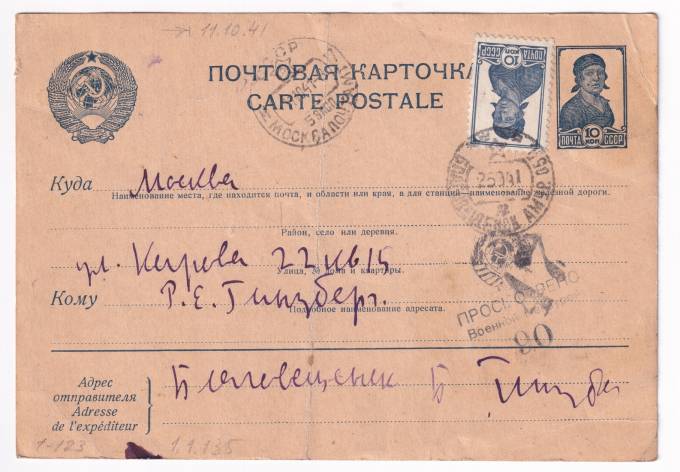 11.10.41
ПОЧТОВАЯ КАРТОЧКА
CARTE POSTALE
10 КОП
ПОЧТА СССР
10 КОП
ПОЧТА СССР
МОСКВА
Куда Москва
Наименование места, где находится почта, и области или края, а для станций—наименование железной дороги.
Район, село или деревня.
ул. Кирова 22 кв 15
Улица, № дома и квартиры.
Кому Р. Е. Гинзберг.
Подробное наименование адресата.
ПРОСМОТРЕНО
Военной
90
Адрес отправителя
Adresse de l'expéditeur
Благовещенск Б Гинзбе
1-123
1.1.135